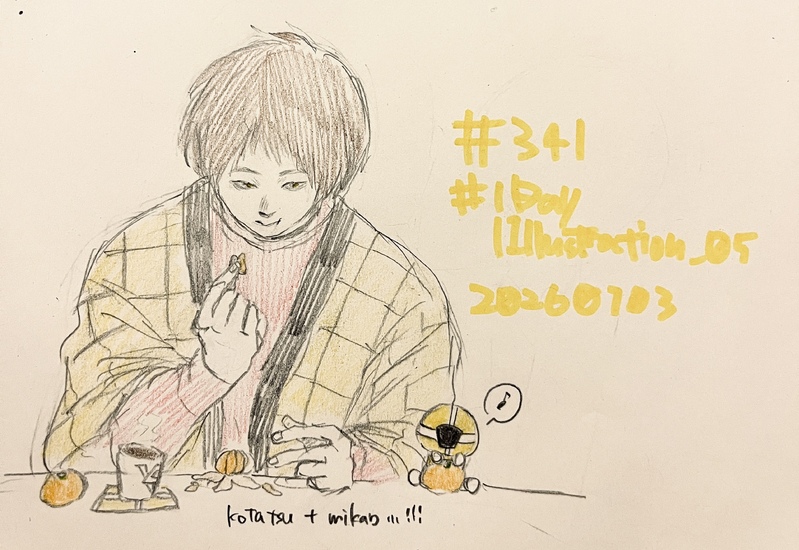 #341
#1Day
1Illustration_05
20260703
kotatsu + mikan ... !!!